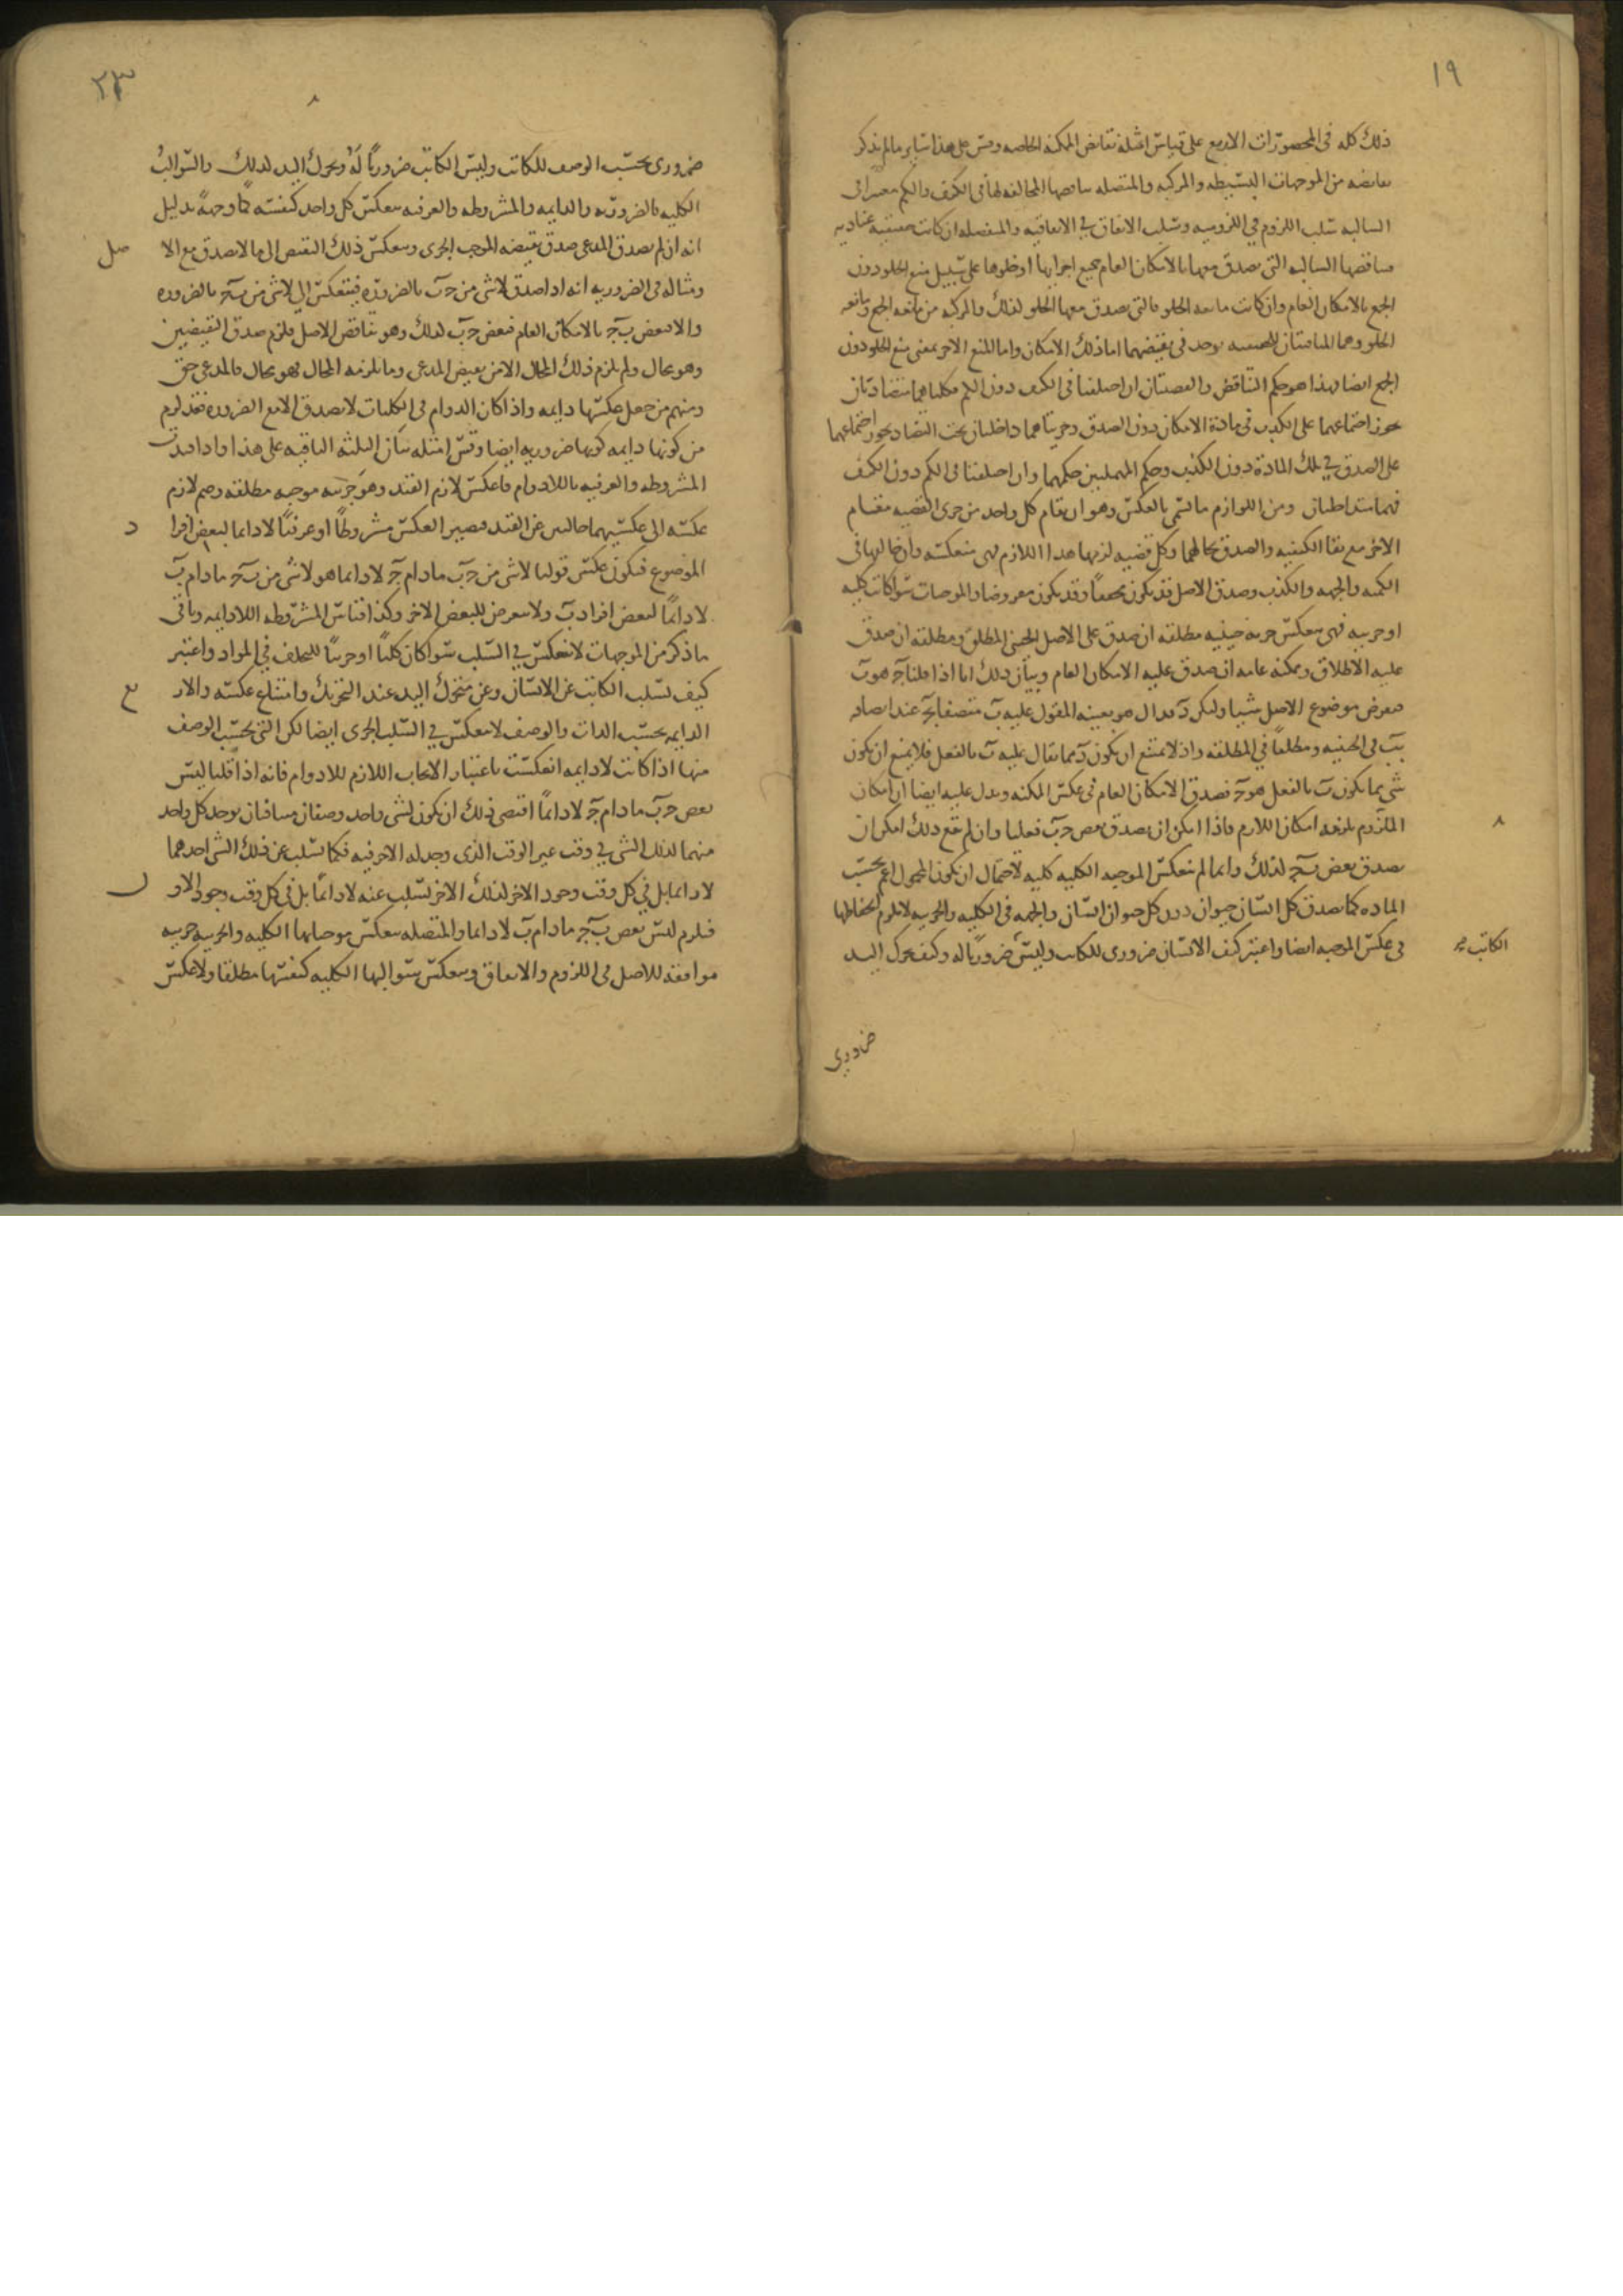 ١٩
ذلك كله في المحصورات الاربع على قياس امثلة نقائض الممكنة الخاصه وقس على هذا سائر ما لم نذكر
نقايضه من الموجهات البسيطه والمركبه والمتصله يناقضها المخالفه لها في الكيف والكم معتبرا في
السالبه سلب اللزوم في اللزوميه وسلب الاتفاق في الاتفاقيه والمنفصله ان كانت حقيقية عناديه
يناقضها السالبه التي يصدق معها بالامكان العام جميع اجزايها او خلوها على سبيل منع الخلو دون
الجمع بالامكان العام وان كانت مانعه الخلو فالتي يصدق معها الخلو لذلك والمركبه من مانعه الجمع ومانعه
الخلو وهما يوجد في نقيضهما اما ذلك الامكان واما المنع الاخر بمعنى منع الخلو دون
الجمع ايضا فهذا هو حكم التناقض والقضيتان ان اختلفتا في الكيف دون الكم فكليتاهما متضادتان
يجوز اجتماعهما على الكذب في مادة الامكان دون الصدق وجزيتاهما داخلتان تحت التضاد يجوز اجتماعهما
على الصدق في تلك المادة دون الكذب وحكم المهملتين حكمهما وان اختلفتا في الكم دون الكيف
فهما متداخلتان ومن اللوازم ما تسمى بالعكس وهو ان يقام كل واحد من جزئ القضيه مقام
الاخر مع بقا الكيفيه والصدق بحالهما وكل قضيه لزمها هذا اللازم فهي منعكسه وان خالفها في
الكميه والجهه والكذب وصدق الاصل قد يكون محققا وقد يكون مفروضا والموجبات سوا كانت كليه
او جزييه فهي تنعكس جزييه حينيه مطلقه ان صدق على الاصل الحيني المطلق ومطلقه ان صدق
عليه الاطلاق وممكنه عامه ان صدق عليه الامكان العام وبيان ذلك انا اذا قلنا جـ هو ب
نفرض موضوع الاصل شيا وليكن د فدال هو بعينه المقول عليه ب متصفا بجـ عند اتصافه
ببـ في الحينيه ومطلقا في المطلقه واذ لا يمتنع ان يكون د مما يقال عليه ب بالفعل فلا يمتنع ان يكون
شي مما يكون ب بالفعل هو جـ فصدق الامكان العام في عكس الممكنه ويدل عليه ايضا ان امكان
الملزوم يلزمه امكان اللازم فاذا امكن ان يصدق بعض جـ ب فعليا وان لم يقع ذلك امكن ان
يصدق بعض ب جـ لذلك وانما لم تنعكس الموجبه الكليه كليه لاحتمال ان يكون المحمول اعم بحسب
الماده كما يصدق كل انسان حيوان دون كل حيوان انسان والجهه في الكليه والجزييه لا يلزم انحفاظها
في عكس الموجبه ايضا واعتبر كيف الانسان ضروري للكاتب وليس ضروريا له وكيف تحرك اليد
الكاتب
ضروري
٢٣
ضروري بحسب الوصف للكاتب وليس الكاتب ضروريا له وتحرك اليد لذلك والسوالب
الكليه فالضروريه والدايمه والمشروطه والعرفيه ينعكس كل واحد كنفسه كما وجهة بدليل
انه ان لم يصدق المدعى صدق نقيضه الموجب الجزى وينعكس ذلك النقيض الى ما لا يصدق مع الا
صل
ومثاله في الضروريه انه اذا صدق لا شي من جـ ب بالضروره فينعكس الى لا شي من ب جـ بالضروره
والا فبعض ب جـ بالامكان العام فبعض جـ ب لذلك وهو يناقض الاصل فلزم صدق النقيضين
وهو محال ولم يلزم ذلك المحال الا من نقيض المدعى وما يلزمه المحال فهو محال فالمدعى حق
ومنهم من جعل عكسها دايمه واذا كان الدوام في الكليات لا يصدق الا مع الضروره فقد لزم
من كونها دايمه كونها ضروريه ايضا وقس امثله بيان الثلثه الباقيه على هذا واذا قيدت
المشروطه والعرفيه باللادوام فاعكس لازم القيد وهو جزييه موجبه مطلقه وضم لازم
عكسه الى عكسيهما خاليين عن القيد فيصير العكس مشروطا او عرفيا لا دايما لبعض افرا
د
الموضوع فيكون عكس قولنا لا شي من جـ ب ما دام جـ لا دايما هو لا شي من ب جـ ما دام ب
لا دايما لبعض افراد ب ولا تعرض للبعض الاخر وكذا قياس المشروطه اللادايمه وباقي
ما ذكر من الموجهات لا ينعكس في السلب سوا كان كليا او جزيا للتخلف في المواد واعتبر
كيف تسلب الكاتب عن الانسان وعن متحرك اليد عند التحريك وامتناع عكسه والار
بع
الدايمه بحسب الذات والوصف لا ينعكس في السلب الجزى ايضا لكن التي بحسب الوصف
منها اذا كانت لا دايمه انعكست باعتبار الايجاب اللازم للادوام فانه اذا قلنا ليس
بعض جـ ب ما دام جـ لا دايما اقتضى ذلك ان يكون لشي واحد وصفان متنافيان يوجد كل واحد
منهما لذلك الشي في وقت غير الوقت الذي وجد له الاخر فيه فكما تسلب عن ذلك الشي احدهما
لا دايما بل في كل وقت وجود الاخر لذلك الاخر تسلب عنه لا دايما بل في كل وقت وجود الاو
ل
فيلزم ليس بعض ب جـ ما دام ب لا دايما والمتصله ينعكس موجباتها الكليه والجزييه جزييه
موافقه للاصل في اللزوم والاتفاق وينعكس سوالبها الكليه كنفسها مطلقا ولا عكس